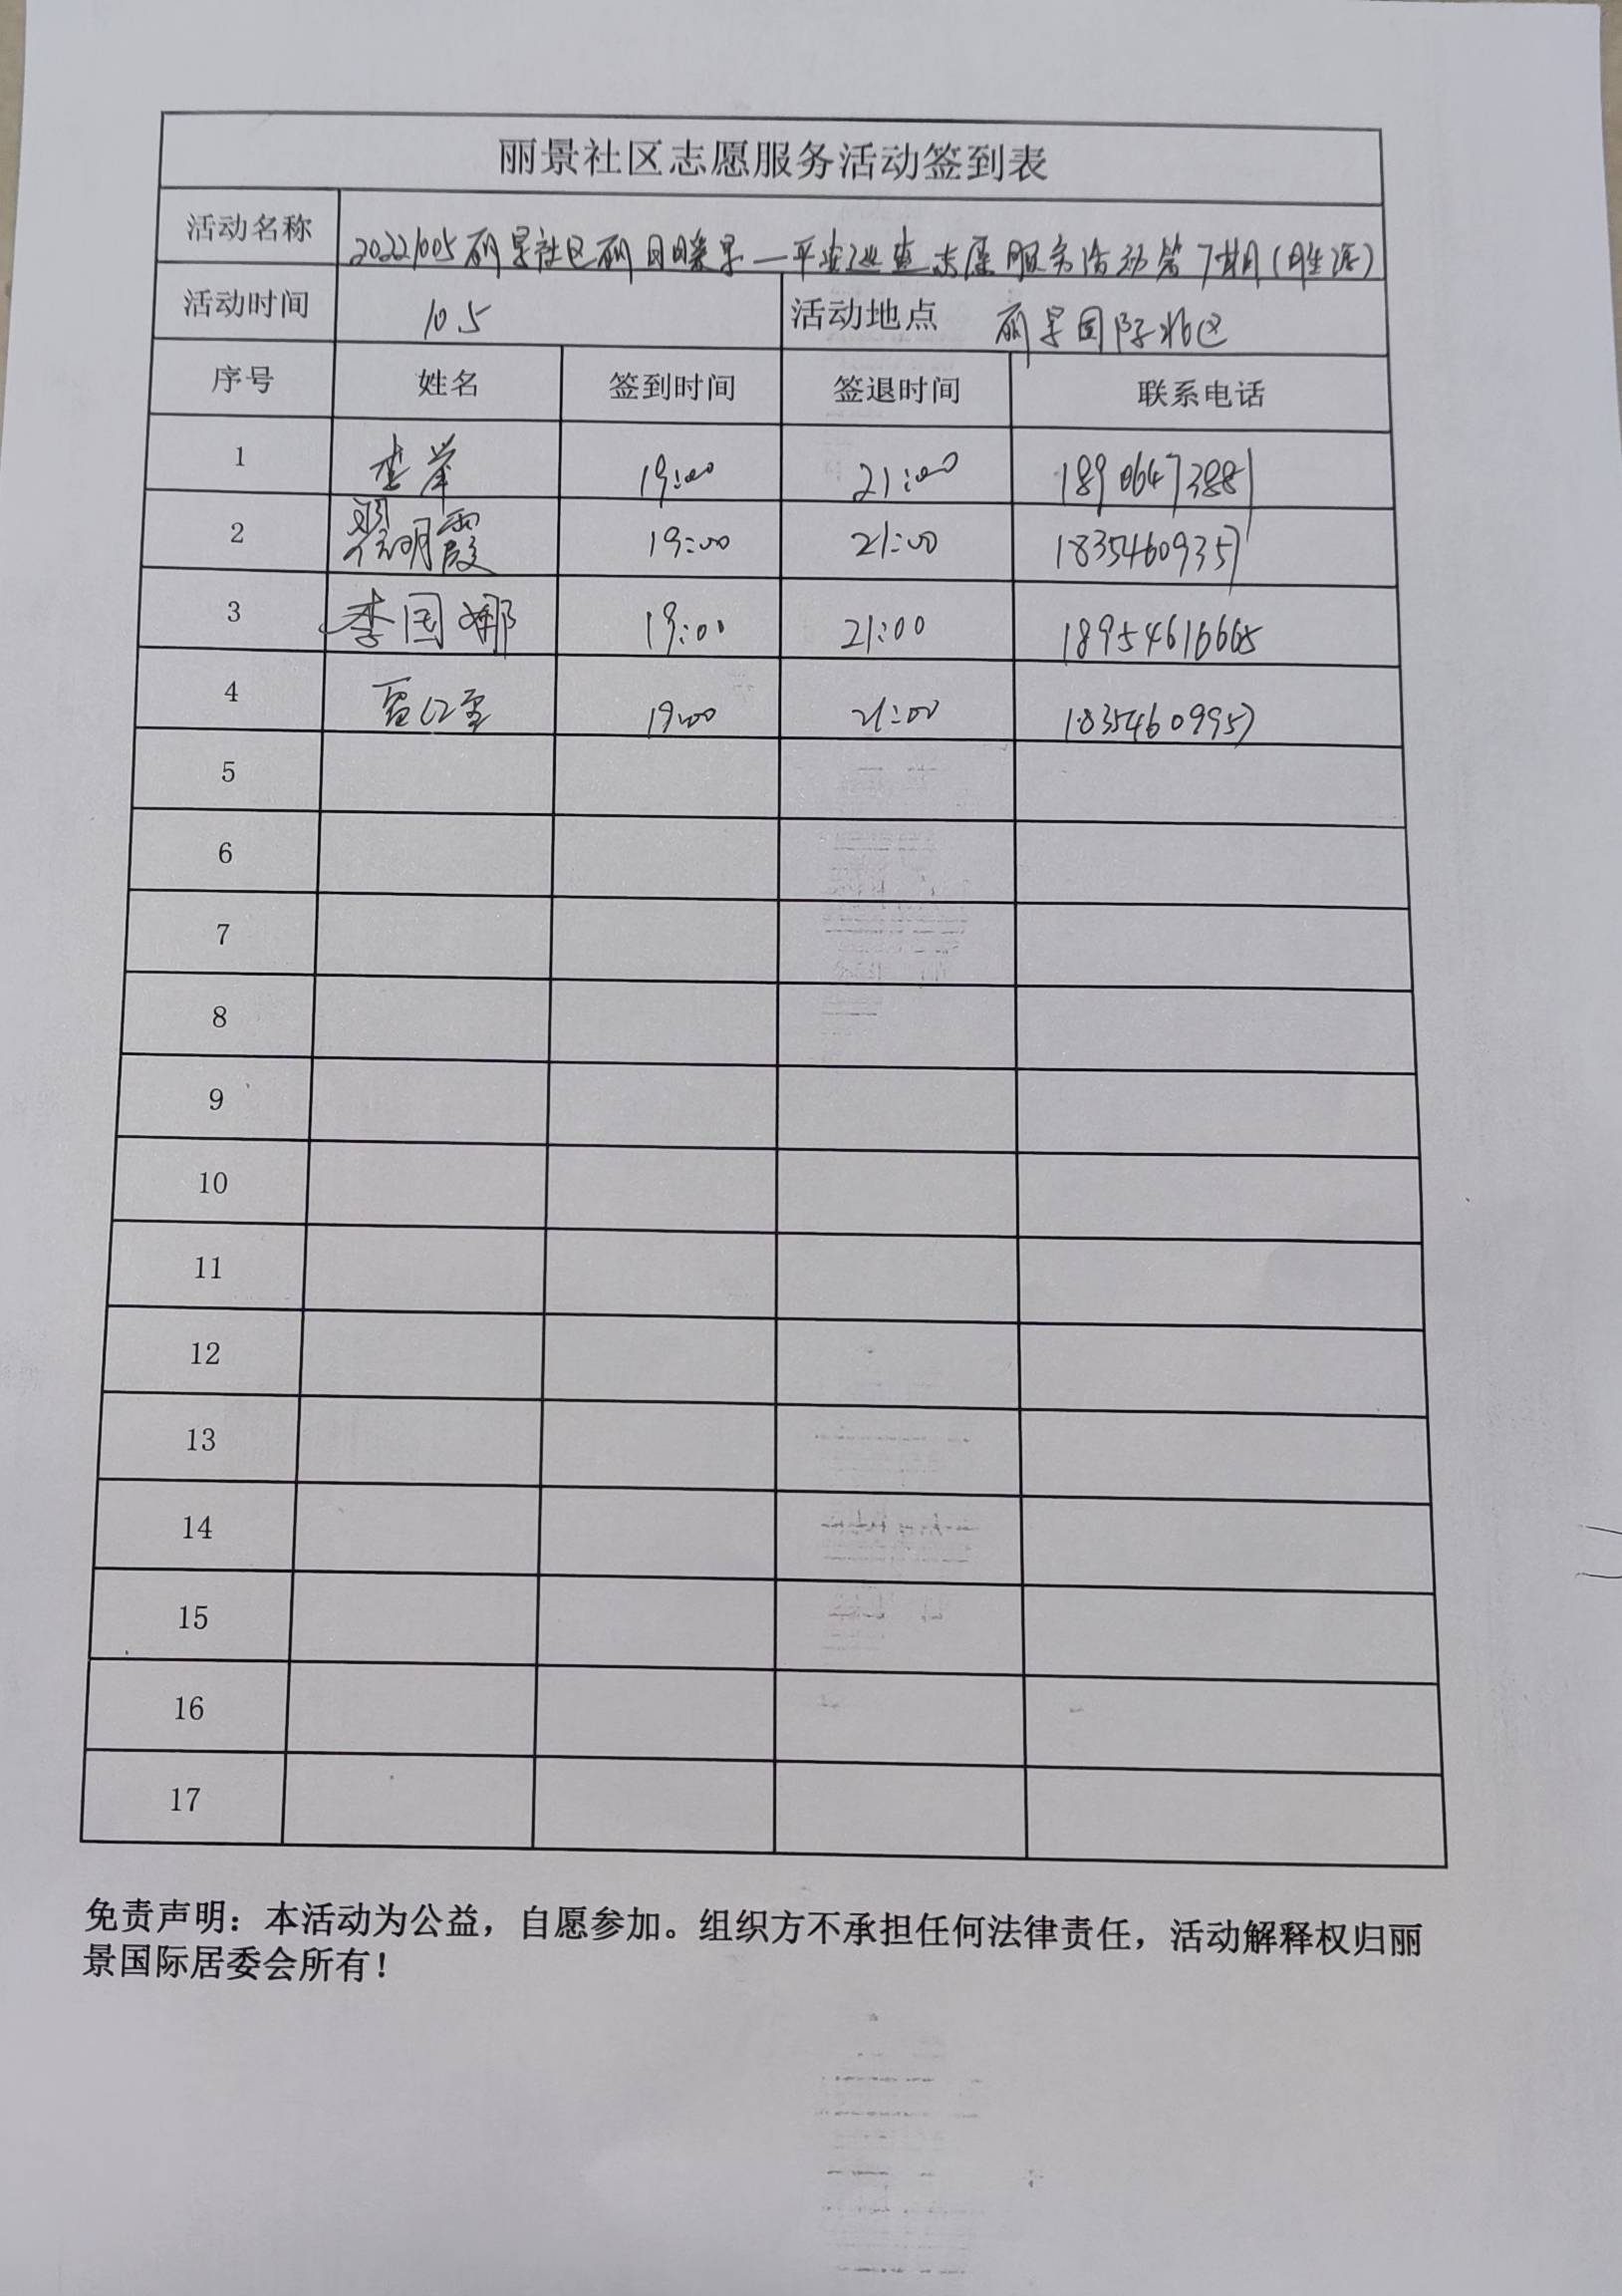 丽景社区志愿服务活动签到表
活动名称 20221005丽景社区丽日暖景—平安巡查志愿服务活动第7期(胜达)
活动时间 10.5 活动地点 丽景国际北区
序号 姓名 签到时间 签退时间 联系电话
1 19:00 21:00 18906473881
2 翟明霞 19:00 21:00 18354609357
3 李国娜 19:00 21:00 18954616665
4 19:00 21:00 18354609957
5
6
7
8
9
10
11
12
13
14
15
16
17
免责声明：本活动为公益，自愿参加。组织方不承担任何法律责任，活动解释权归丽
景国际居委会所有！